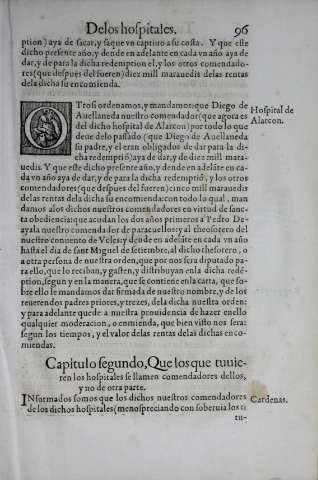 De los hospitales. 96
ption) aya de sacar, y saque vn captiuo a su costa. Y que este
dicho presente año, y dende en adelante en cada vn año aya de
dar, y de para la dicha redemption el, y los otros comendado-
res (que despues del fueren) diez mill marauedis delas rentas
dela dicha su encomienda.
OTrosi ordenamos, y mandamos: que Diego de
Auellaneda nuestro comendador (que agora es
del dicho hospital de Alarcon) por todo lo que
deue delo passado (que Diego de Auellaneda
su padre, y el eran obligados de dar para la di-
cha redemptiō) aya de dar, y de diez mill mara-
uedis. Y que este dicho presente año, y dende en adelāte en ca-
da vn año aya de dar, y de para la dicha redemptiō, y los otros
comendadores (que despues del fueren) cinco mill marauedis
delas rentas dela dicha su encomienda: con todo lo qual, man
damos alos dichos nuestros comendadores en virtud de sanc-
ta obediencia: que acudan los dos años primeros a Pedro De-
ayala nuestro comendador de paracuellos: y al thesorero del
nuestro conuento de Vcles: y dende en adelāte en cada vn año
hasta el dia de sant Miguel de setiembre, al dicho thesorero, o
a otra persona de nuestra orden, que por nos sera diputado pa-
ra ello, que lo reciban, y gasten, y distribuyan enla dicha redē-
ption, segun y en la manera, que se contiene enla carta, que so-
bre ello le mandamos dar firmada de nuestro nombre, y de los
reuerendos padres priores, y trezes, dela dicha nuestra orden:
y para adelante quede a nuestra prouidencia de hazer enello
qualquier moderacion, o enmienda, que bien visto nos sera:
segun los tiempos, y el valor delas rentas delas dichas enco-
miendas.
Hospital de
Alarcon.
Capitulo segundo, Que los que tuuie-
ren los hospitales se llamen comendadores dellos,
y no de otra parte.
INformados somos que los dichos nuestros comendadores
de los dichos hospitales (menospreciando con soberuia los ti
tu-
Cardenas.